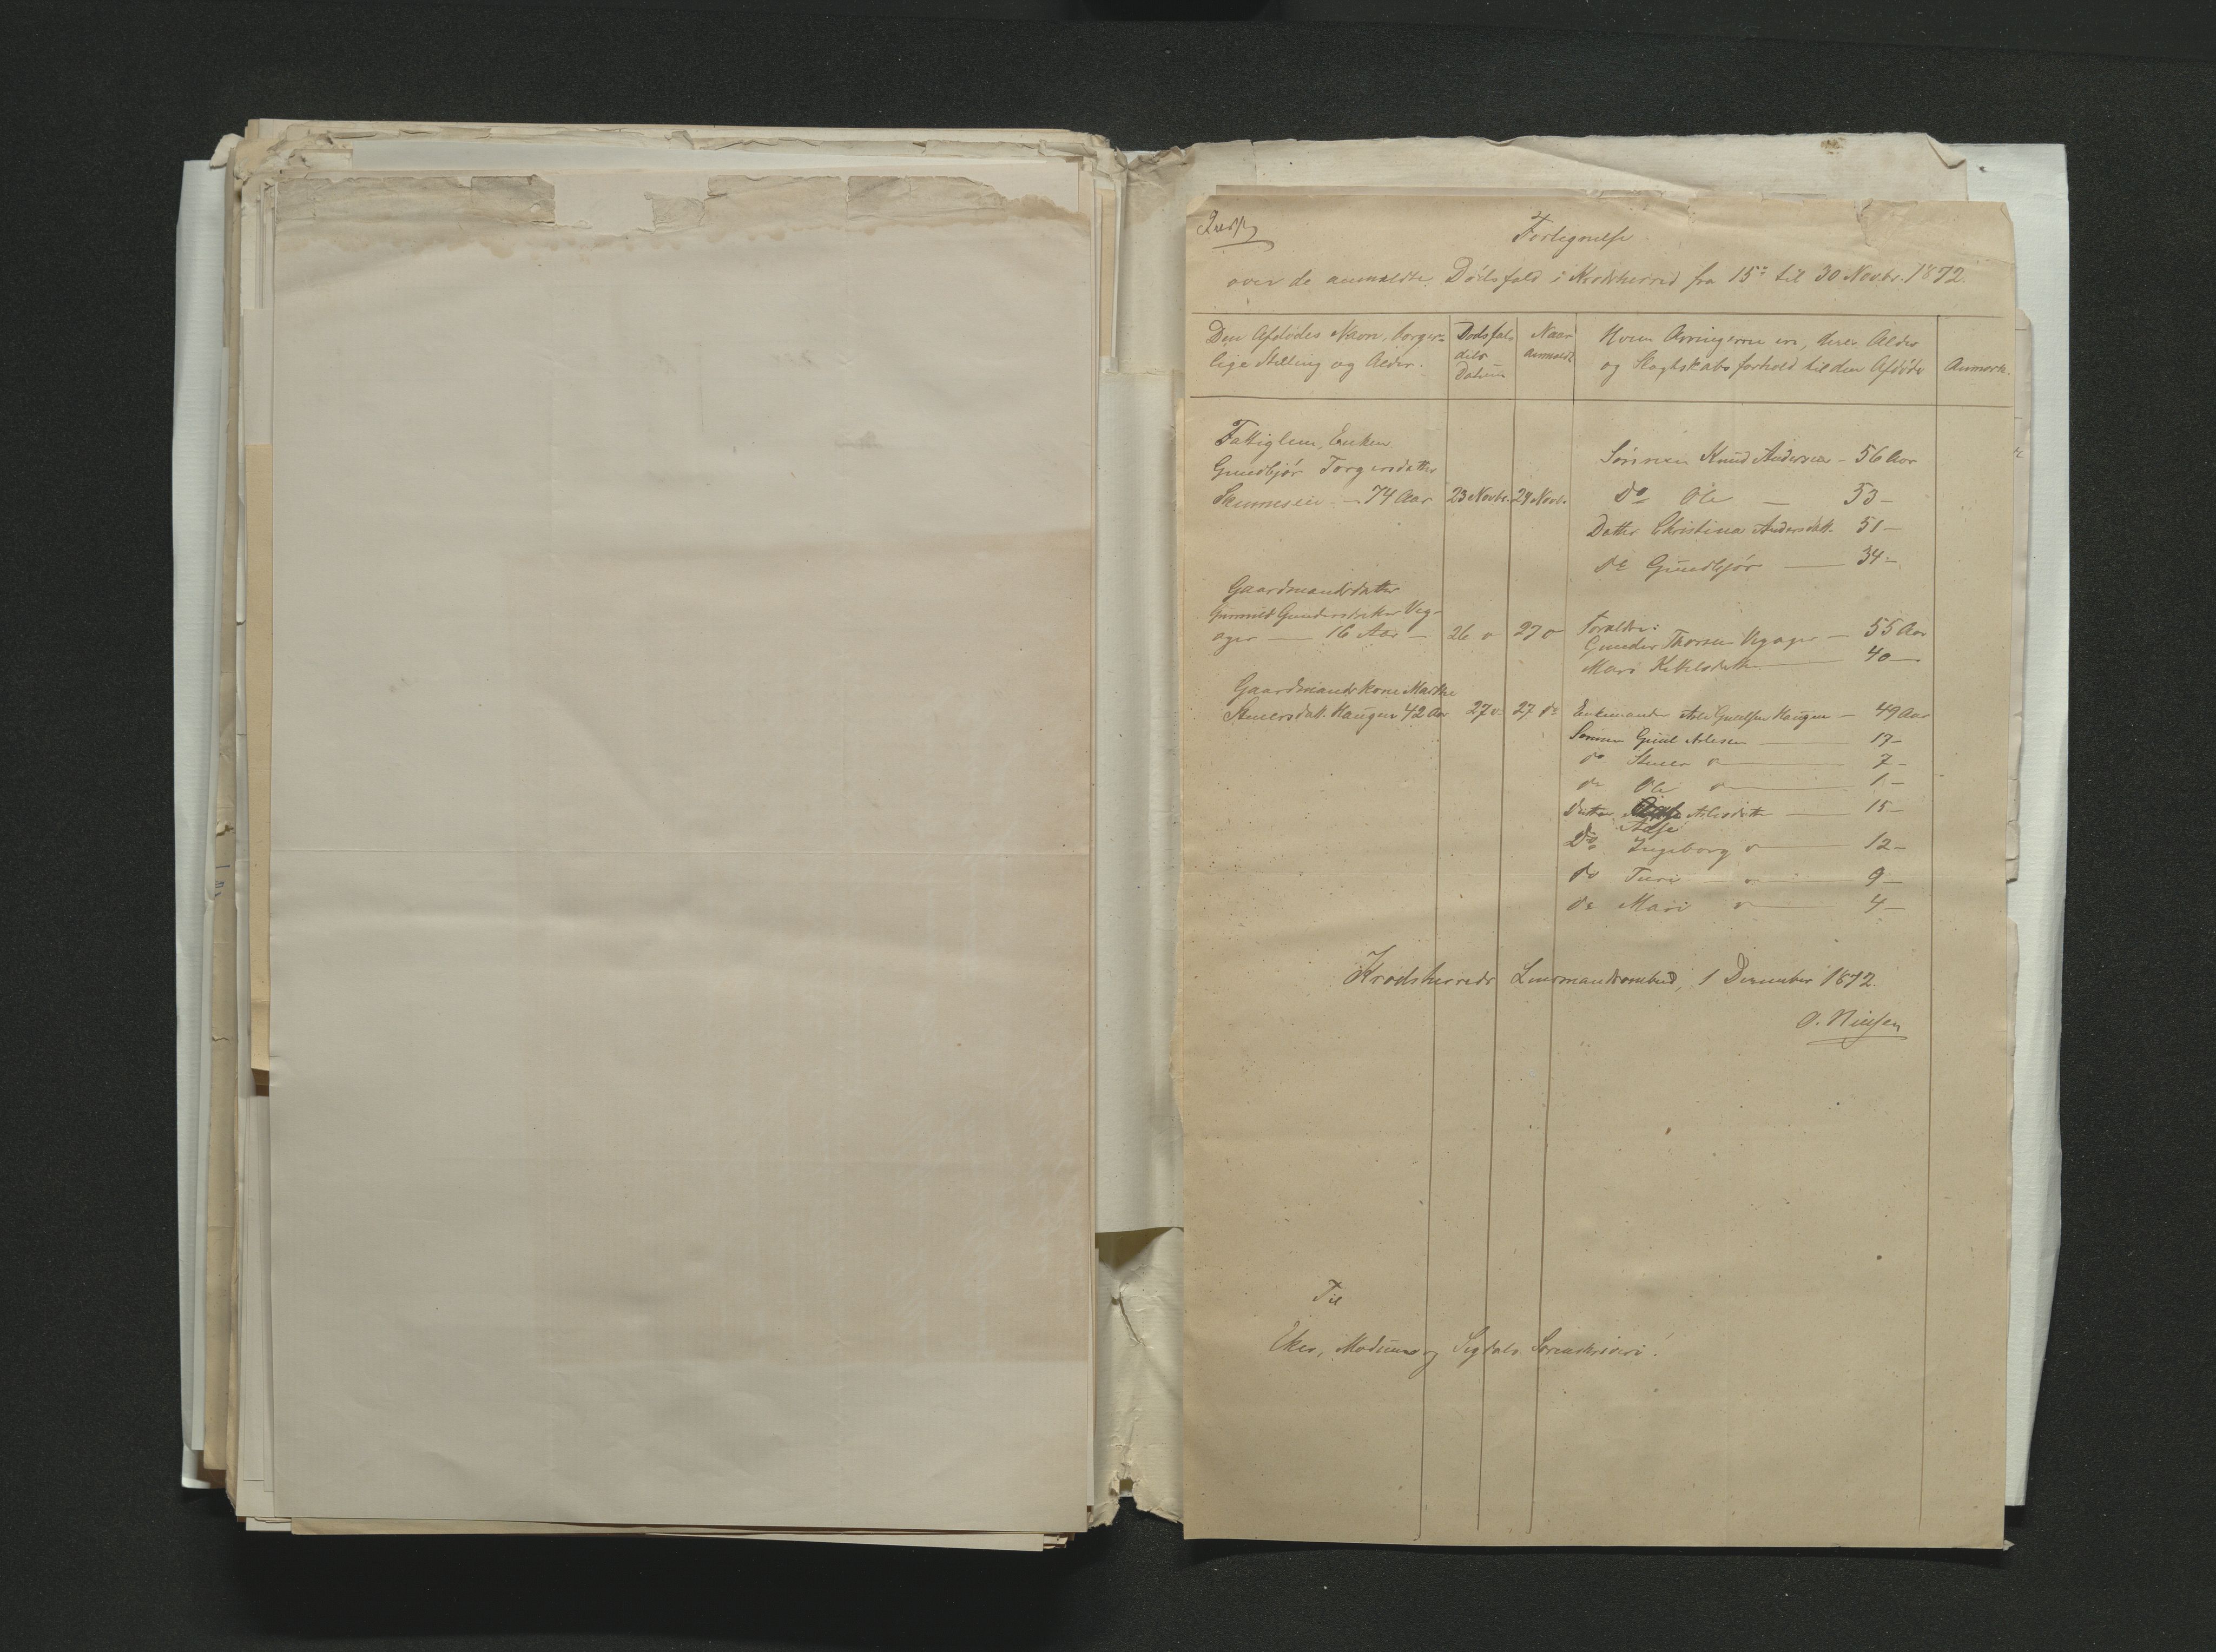 Fortegnelse
over de anmeldte Dødsfald i Krødsherred fra 15de til 30 Novbr. 1872.
Den Afdødes Navn, borger-
lige Stilling og Alder.
Dødsfal-
dets
Datum
Naar
anmeldt
Hvem Arvingerne ere, deres Alder
og Slægtskabsforhold til den Afdøde
Anmærk.
Fattiglem, Enken
Gundbjør Torgersdatter
— 74 Aar 23 Novbr. 24 Novb.
Sønnen Knud Andersen — 56 Aar
Do Ole — 53 —
Datter Christina Andersdatt. 51 —
do Gundbjør — 34 —
Gaardmandsdatter
Gunnild Gundersdatter Veg-
ager — 16 Aar — 26 do 27 do
Forældre:
Gunder Thorsen Vegager — 55 Aar
Mari Kittelsdatter — 40 —
Gaardmandskone Marthe
Steensdatt. Haugen 42 Aar 27 do 27 do
Enkemanden Asle Gulsen Haugen — 49 Aar
Sønnen Guul Aslesen — 17 —
do Steen do — 7 —
do Ole do — 1 —
Datter Aslesdatter — 15 —
Aase
Do Ingeborg do — 12 —
do Turi — do — 9 —
do Mari do — 4 —
Krødsherreds Lensmandsombud, 1 December 1872.
O. Nielsen
Til
Eker, Modum og Sigdals Sorenskriveri!